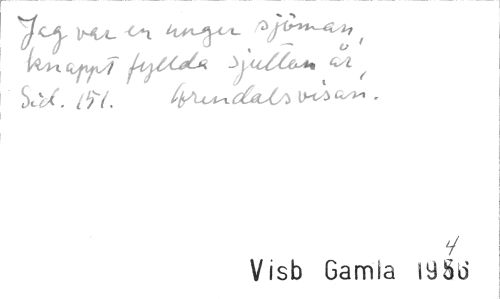 Jag var en unger sjöman,
knappt fyllda sjutton år,
Sid. 151. Arendalsvisan.
4
Visb Gamla 1986